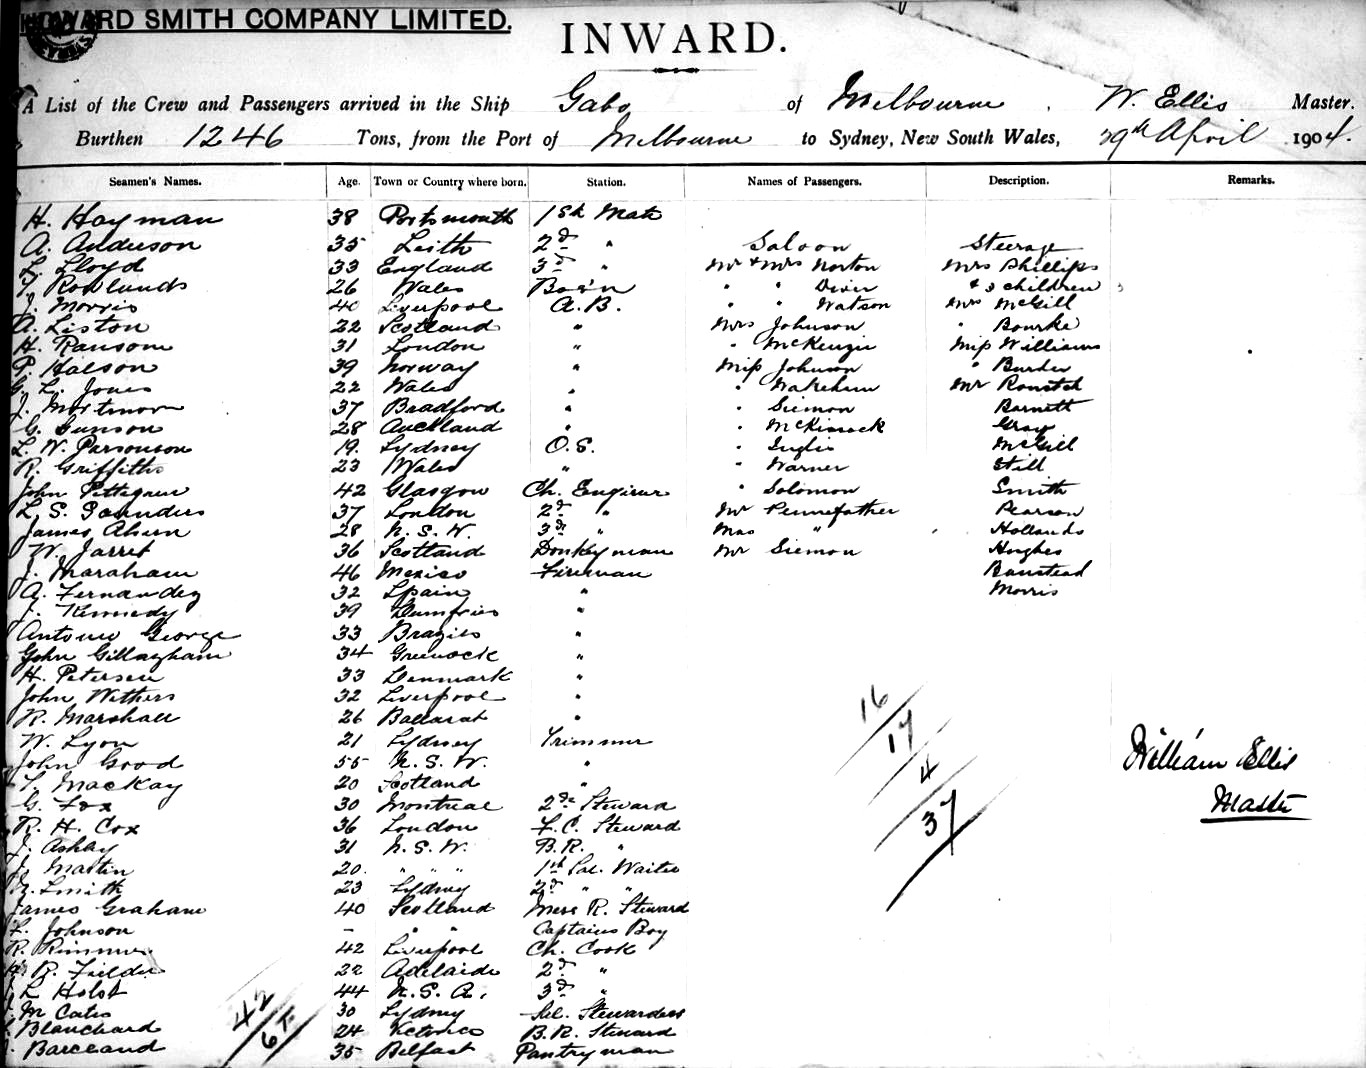 HOWARD SMITH COMPANY LIMITED.
INWARD.
A List of the Crew and Passengers arrived in the Ship Gabo of Melbourne, W. Ellis Master.
Burthen 1246 Tons, from the Port of Melbourne to Sydney, New South Wales, 29th April 1904.
Seamen's Names. Age. Town or Country where born. Station. Names of Passengers. Description. Remarks.
H. Hayman 38 Portsmouth 1st Mate
A. Anderson 35 Leith 2nd " Saloon Steerage
L. Lloyd 33 England 3rd " Mr & Mrs Norton Mrs Phillips
Rowlands 26 Wales Bos'n " " & 3 children
J. Morris 40 Liverpool A.B. " " Watson Mrs McGill
A. Liston 22 Scotland " Mrs Johnson " Bourke
H. Ransom 31 London " " McKenzie Miss Williams
P. Halson 39 Norway " Miss Johnson "
G. L. Jones 22 Wales " " Wakeham Mr
J. Mortimor 37 Bradford " " Siemon Barnett
G. Gunson 28 Auckland " " McKissock Gray
L. W. Parsonson 19 Sydney O.S. " Inglis McGill
R. Griffiths 23 Wales " " Warner Still
John Pettegrew 42 Glasgow Ch. Engineer " Solomon Smith
L. S. Saunders 37 London 2nd " Mr Pennefather Pearson
James Ahern 28 N.S.W. 3rd " Mas " Hollands
W. Jarret 36 Scotland Donkeyman Mr Siemon Hughes
J. Maraham 46 Mexico Fireman Banstead
A. Fernandez 32 Spain " Morris
J. Kennedy 39 Dumfries "
Antonio George 33 Brazils "
John Gillingham 34 Greenock "
H. Petersen 33 Denmark "
John Withers 32 Liverpool "
R. Marshall 26 Ballarat "
W. Lyon 21 Sydney Trimmer
John Good 55 N.S.W. "
MacKay 20 Scotland "
G. Fox 30 Montreal 2nd Steward
R. H. Cox 36 London F.C. Steward
J. Ashby 31 N.S.W. B.R. "
J. Martin 20 " " " 1st Sal. Waiter
Smith 23 Sydney 2nd " "
James Graham 40 Scotland Mess R. Steward
F. Johnson - " " Captains Boy
R. Rimmer 42 Liverpool Ch. Cook
R. Fielder 22 Adelaide 2nd "
L Holst 44 N.S.A. 3rd "
M Cates 30 Sydney Sal. Stewardess
Blanchard 24 B.R. Steward
Barceand 35 Belfast Pantryman
16
17
4
37
William Ellis
Master
42
67